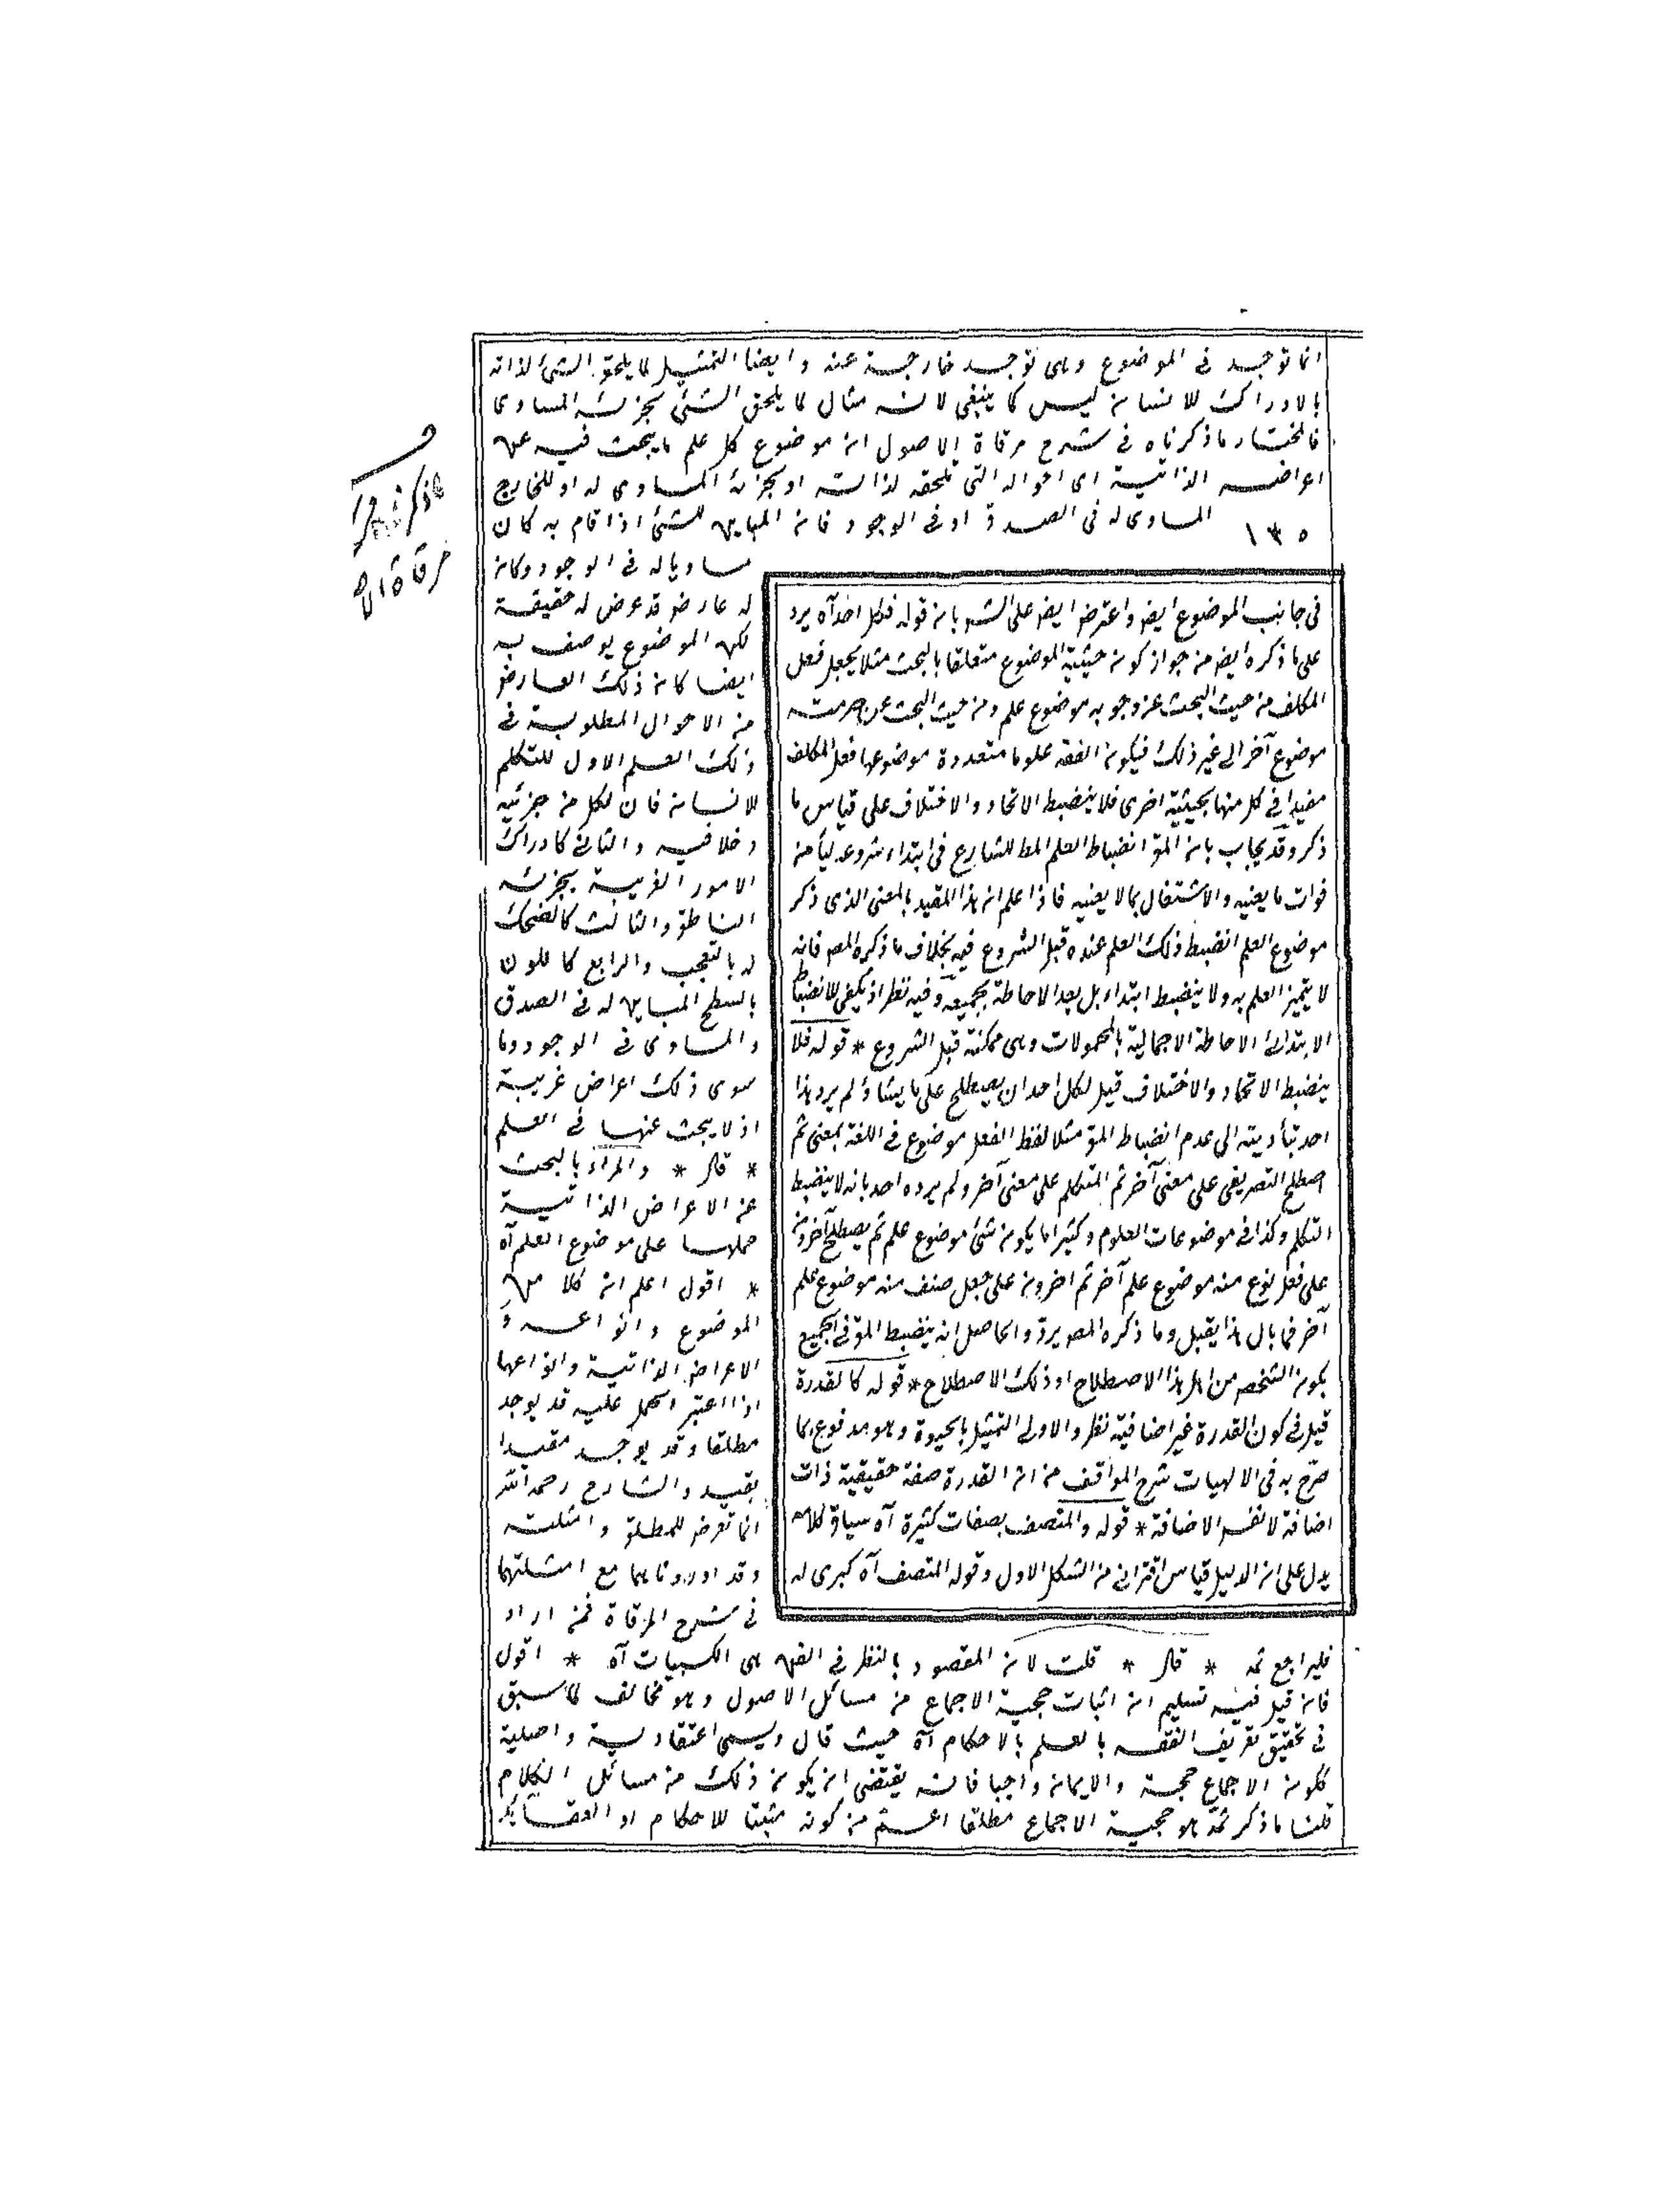 انما توجد في الموضوع وهى توجد خارجة عنه وايضا التمثيل لما يلحق الشئ لذاته
بالادراك للانسان ليس كما ينبغى لانه مثال لما يلحق الشئ بجزئه المساوى
فالمختار ما ذكرناه فى شرح مرقاة الاصول ان موضوع كل علم ما يبحث فيه عن
اعراضه الذاتية اى احواله التى تلحقه لذاته او بجزئه المساوى له او للخارج
المساوى له فى الصدق او فى الوجود فان المباين للشئ اذا قام به كان
١٣٥
مساويا له فى الوجود وكان
له عارض قد عرض له حقيقة
لكن الموضوع يوصف به
ايضا كان ذلك العارض
من الاحوال المطلوبة فى
ذلك العلم الاول للتكلم
للانسان فان لكل من جزئيه
دخلا فيه والثانى كادراك
الامور الغريبة بجزئه
الناطق والثالث كالضحك
له بالتعجب والرابع كاللون
بالسطح المباين له فى الصدق
والمساوى فى الوجود وما
سوى ذلك اعراض غريبة
اذ لا يبحث عنها فى العلم
* قال * والمراد بالبحث
عن الاعراض الذاتية
حملها على موضوع العلم آه
* اقول اعلم ان كلا من
الموضوع وانواعه و
الاعراض الذاتية وانواعها
اذا اعتبر الحمل عليه قد يوجد
مطلقا وقد يوجد مقيدا
بقيد والشارح رحمه الله
انما تعرض للمطلق وامثلته
وقد اوردناهما مع امثلتهما
فى شرح المرقاة فمن اراد
فليراجع ثمه * قال * قلت لان المقصود بالنظر فى الفن هى الكسبيات آه * اقول
فان قيل فيه تسليم ان اثبات حجية الاجماع من مسائل الاصول وهو مخالف لما سبق
فى تحقيق تعريف الفقه بالعلم بالاحكام آه حيث قال ويسمى اعتقادية واصلية
ككون الاجماع حجة والايمان واجبا فانه يقتضى ان يكون ذلك من مسائل الكلام
قلنا ما ذكر ثمة هو حجية الاجماع مطلقا اعم من كونه مثبتا للاحكام او العقائد
فى جانب الموضوع ايض واعترض ايض على الشر بان قوله فلكل احد آه يرد
على ما ذكره ايض من جواز كون حيثية الموضوع متعلقا بالبحث مثلا يجعل فعل
المكلف من حيث البحث عن وجوبه موضوع علم ومن حيث البحث عن حرمته
موضوع آخر الى غير ذلك فيكون الفقه علوما متعددة موضوعها فعل المكلف
مقيدا فى كل منها بحيثية اخرى فلا ينضبط الاتحاد والاختلاف على قياس ما
ذكر وقد يجاب بان المق انضباط العلم المط للشارع فى ابتداء شروعه ليأمن
فوات ما يعنيه والاشتغال بما لا يعنيه فاذا علم ان هذا المقيد بالمعنى الذى ذكر
موضوع العلم انضبط ذلك العلم عنده قبل الشروع فيه بخلاف ما ذكره المص فانه
لا يتميز العلم به ولا ينضبط ابتداء بل بعد الاحاطة بجميعه وفيه نظر اذ يكفى للانضباط
الابتدائى الاحاطة الاجمالية بالمحمولات وهى ممكنة قبل الشروع * قوله فلا
ينضبط الاتحاد والاختلاف قيل لكل احد ان يصطلح على ما يشاء ولم يرد هذا
احد بتأديته الى عدم انضباط المق مثلا لفظ الفعل موضوع فى اللغة بمعنى ثم
اصطلح التصريفى على معنى آخر ثم المتكلم على معنى آخر ولم يرده احد بانه لا ينضبط
التكلم وكذا فى موضوعات العلوم وكثيرا ما يكون شئ موضوع علم ثم يصطلح آخرون
على فعل نوع منه موضوع علم آخر ثم اخرون على جعل صنف منه موضوع علم
آخر فما بال هذا يقبل وما ذكره المص يرد والحاصل انه ينضبط المق فى الجميع
بكون الشخص من اهل هذا الاصطلاح او ذلك الاصطلاح * قوله كالقدرة
قيل فى كون القدرة غير اضافية نظر والاولى التمثيل بالحيوة وهو مدفوع بما
صرح به فى الالهيات شرح المواقف من ان القدرة صفة حقيقية ذات
اضافة لا نفس الاضافة * قوله والمتصف بصفات كثيرة آه سياق كلامه
يدل على ان الدليل قياس اقترانى من الشكل الاول وقوله المتصف آه كبرى له